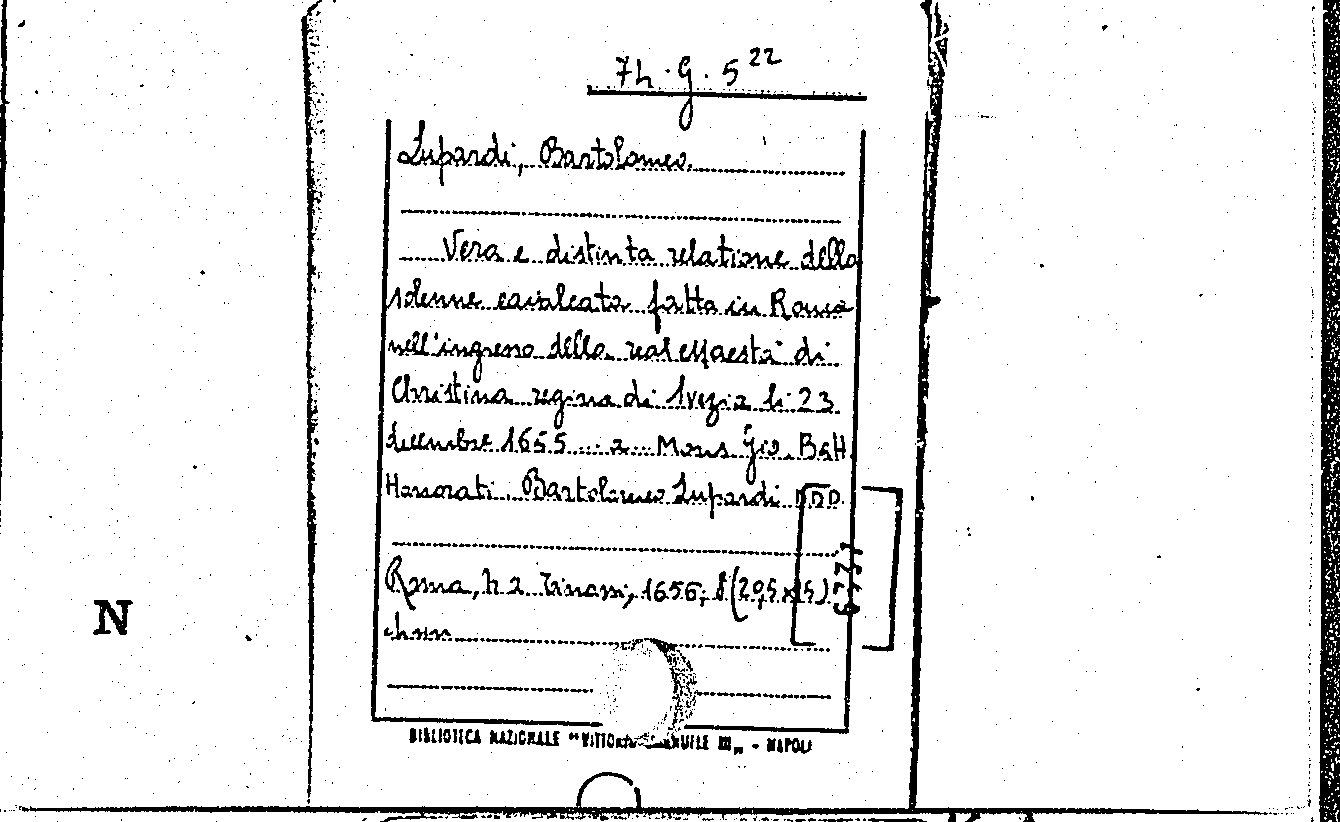 7h. G. 5 22
Lupardi, Bartolomeo.
Vera e distinta relatione della
solenne cavalcata fatta in Roma
nell'ingresso della real Maestà di
Christina regina di Svezia li 23
decembre 1655 ... a Mons Gio. Batt
Honorati Bartolomeo Lupardi DDD.
Roma, 1656, 8 (20,5 x 15)
N
BIBLIOTECA NAZIONALE "VITTORIO EMANUELE III„ - NAPOLI